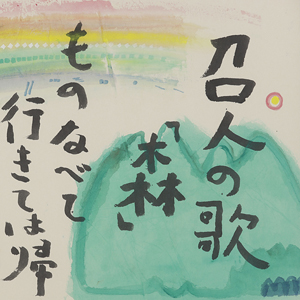 召人の歌
「森」
ものなべて
行きては帰